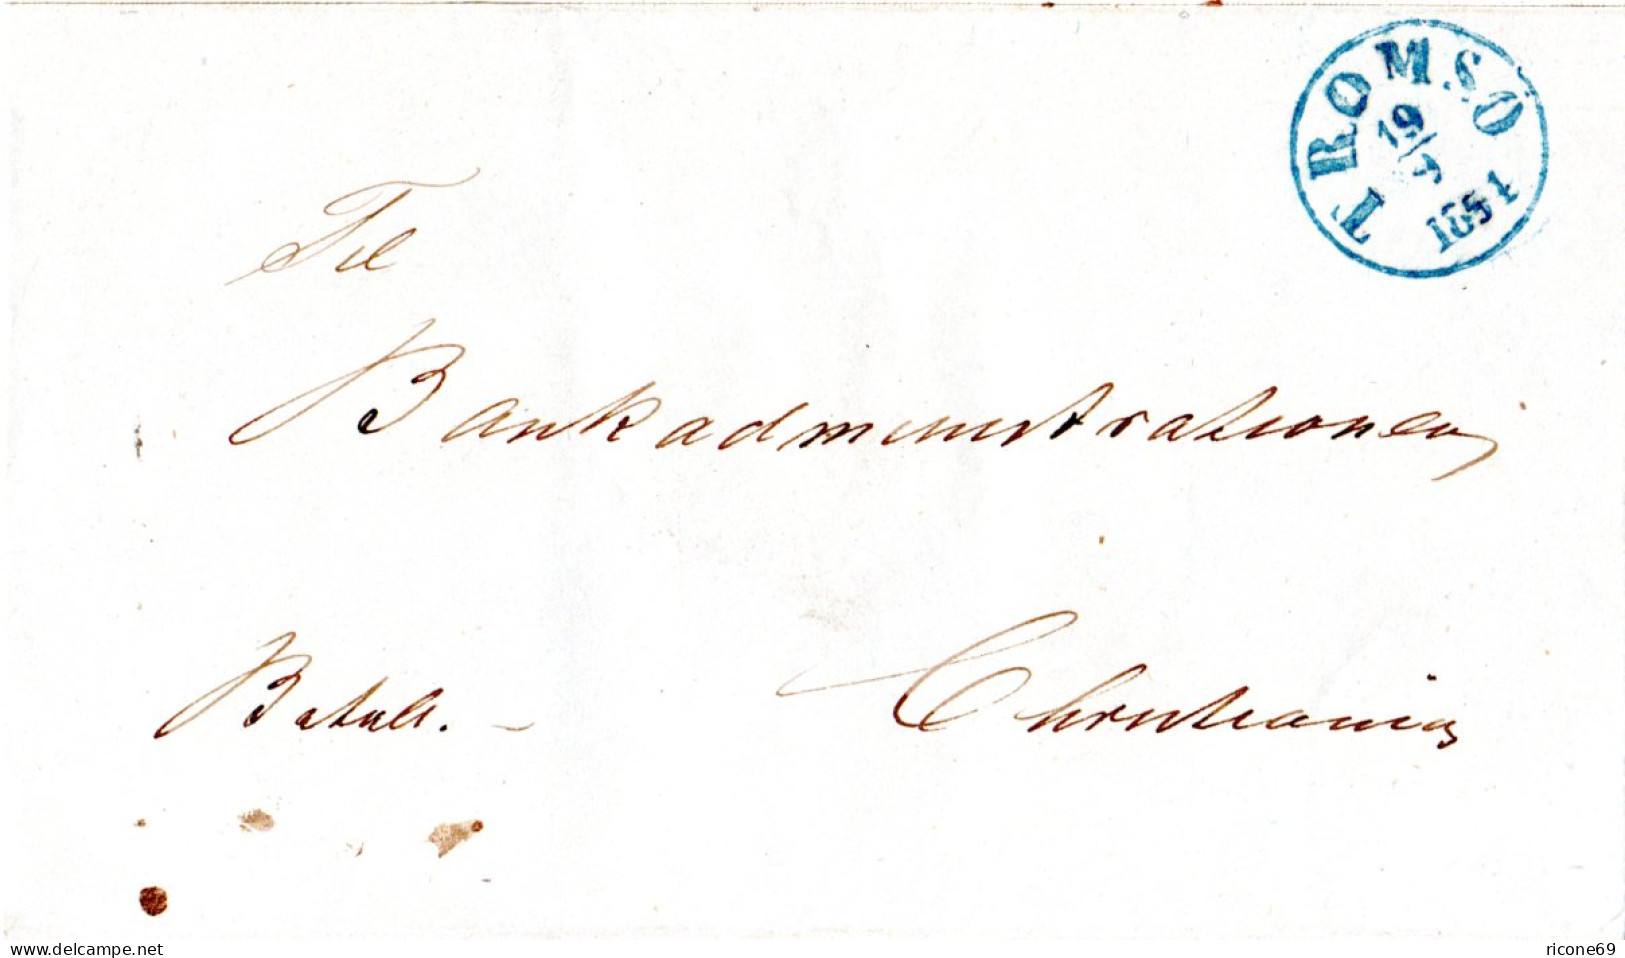 TROMSÖ
19
1851
Til
Bankadministrationen
Christiania
Betalt.
www.delcampe.net
ricone69